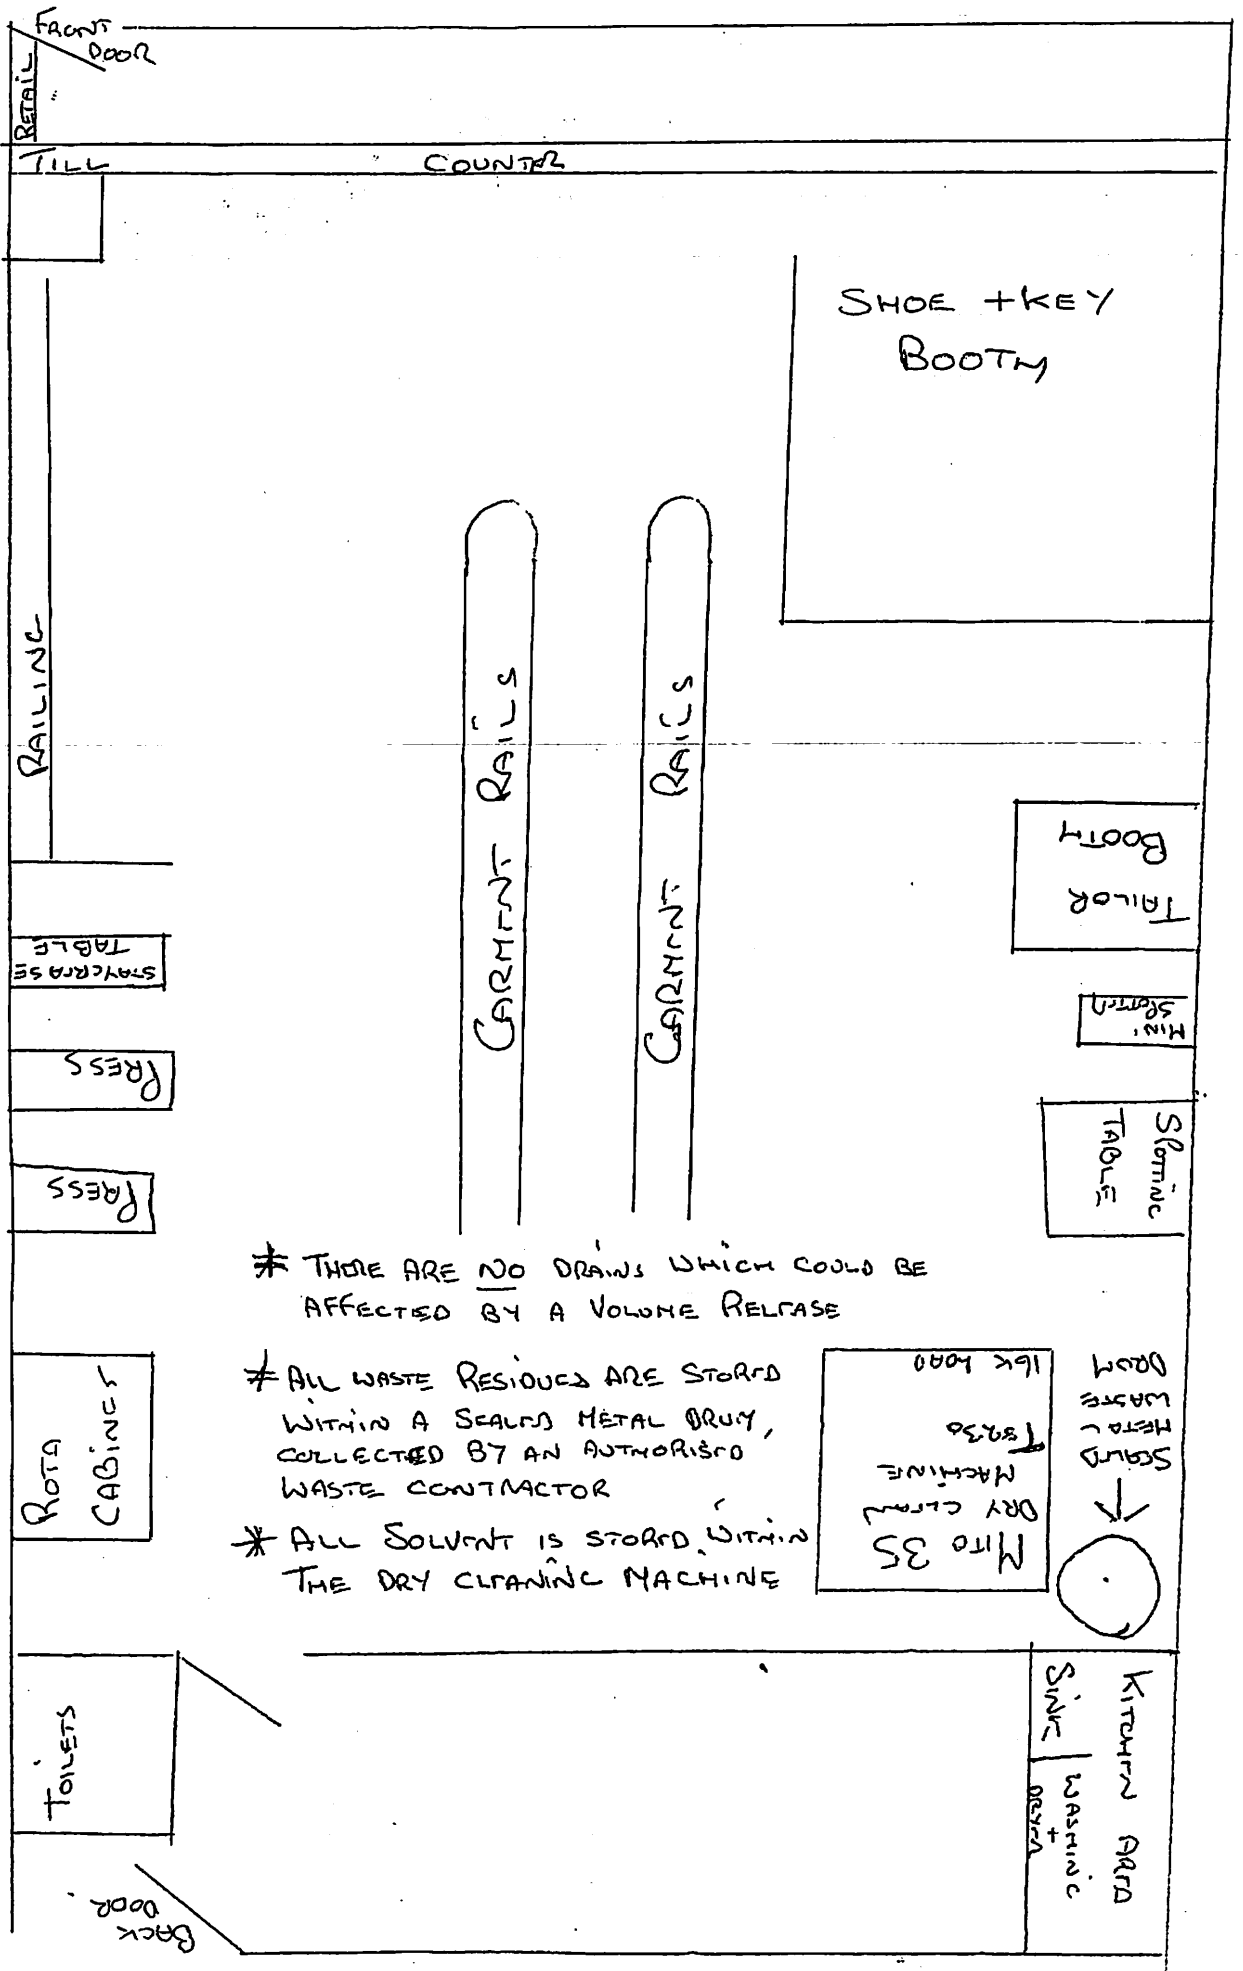 FRONT
DOOR
RETAIL
TILL
COUNTER
SHOE + KEY
BOOTH
RAILING
GARMENT RAILS
GARMENT RAILS
TAILOR
BOOTH
STAYCREASE
TABLE
MINI
SPOTTER
PRESS
SPOTTING
TABLE
PRESS
* THERE ARE NO DRAINS WHICH COULD BE
AFFECTED BY A VOLUME RELEASE
* ALL WASTE RESIDUES ARE STORED
WITHIN A SEALED METAL DRUM,
COLLECTED BY AN AUTHORISED
WASTE CONTRACTOR
* ALL SOLVENT IS STORED WITHIN
THE DRY CLEANING MACHINE
ROTA
CABINET
MITO 35
DRY CLEAN
MACHINE
16K LOAD
SEALED
METAL
WASTE
DRUM
TOILETS
KITCHEN AREA
SINK
WASHING
+
DRYER
BACK
DOOR